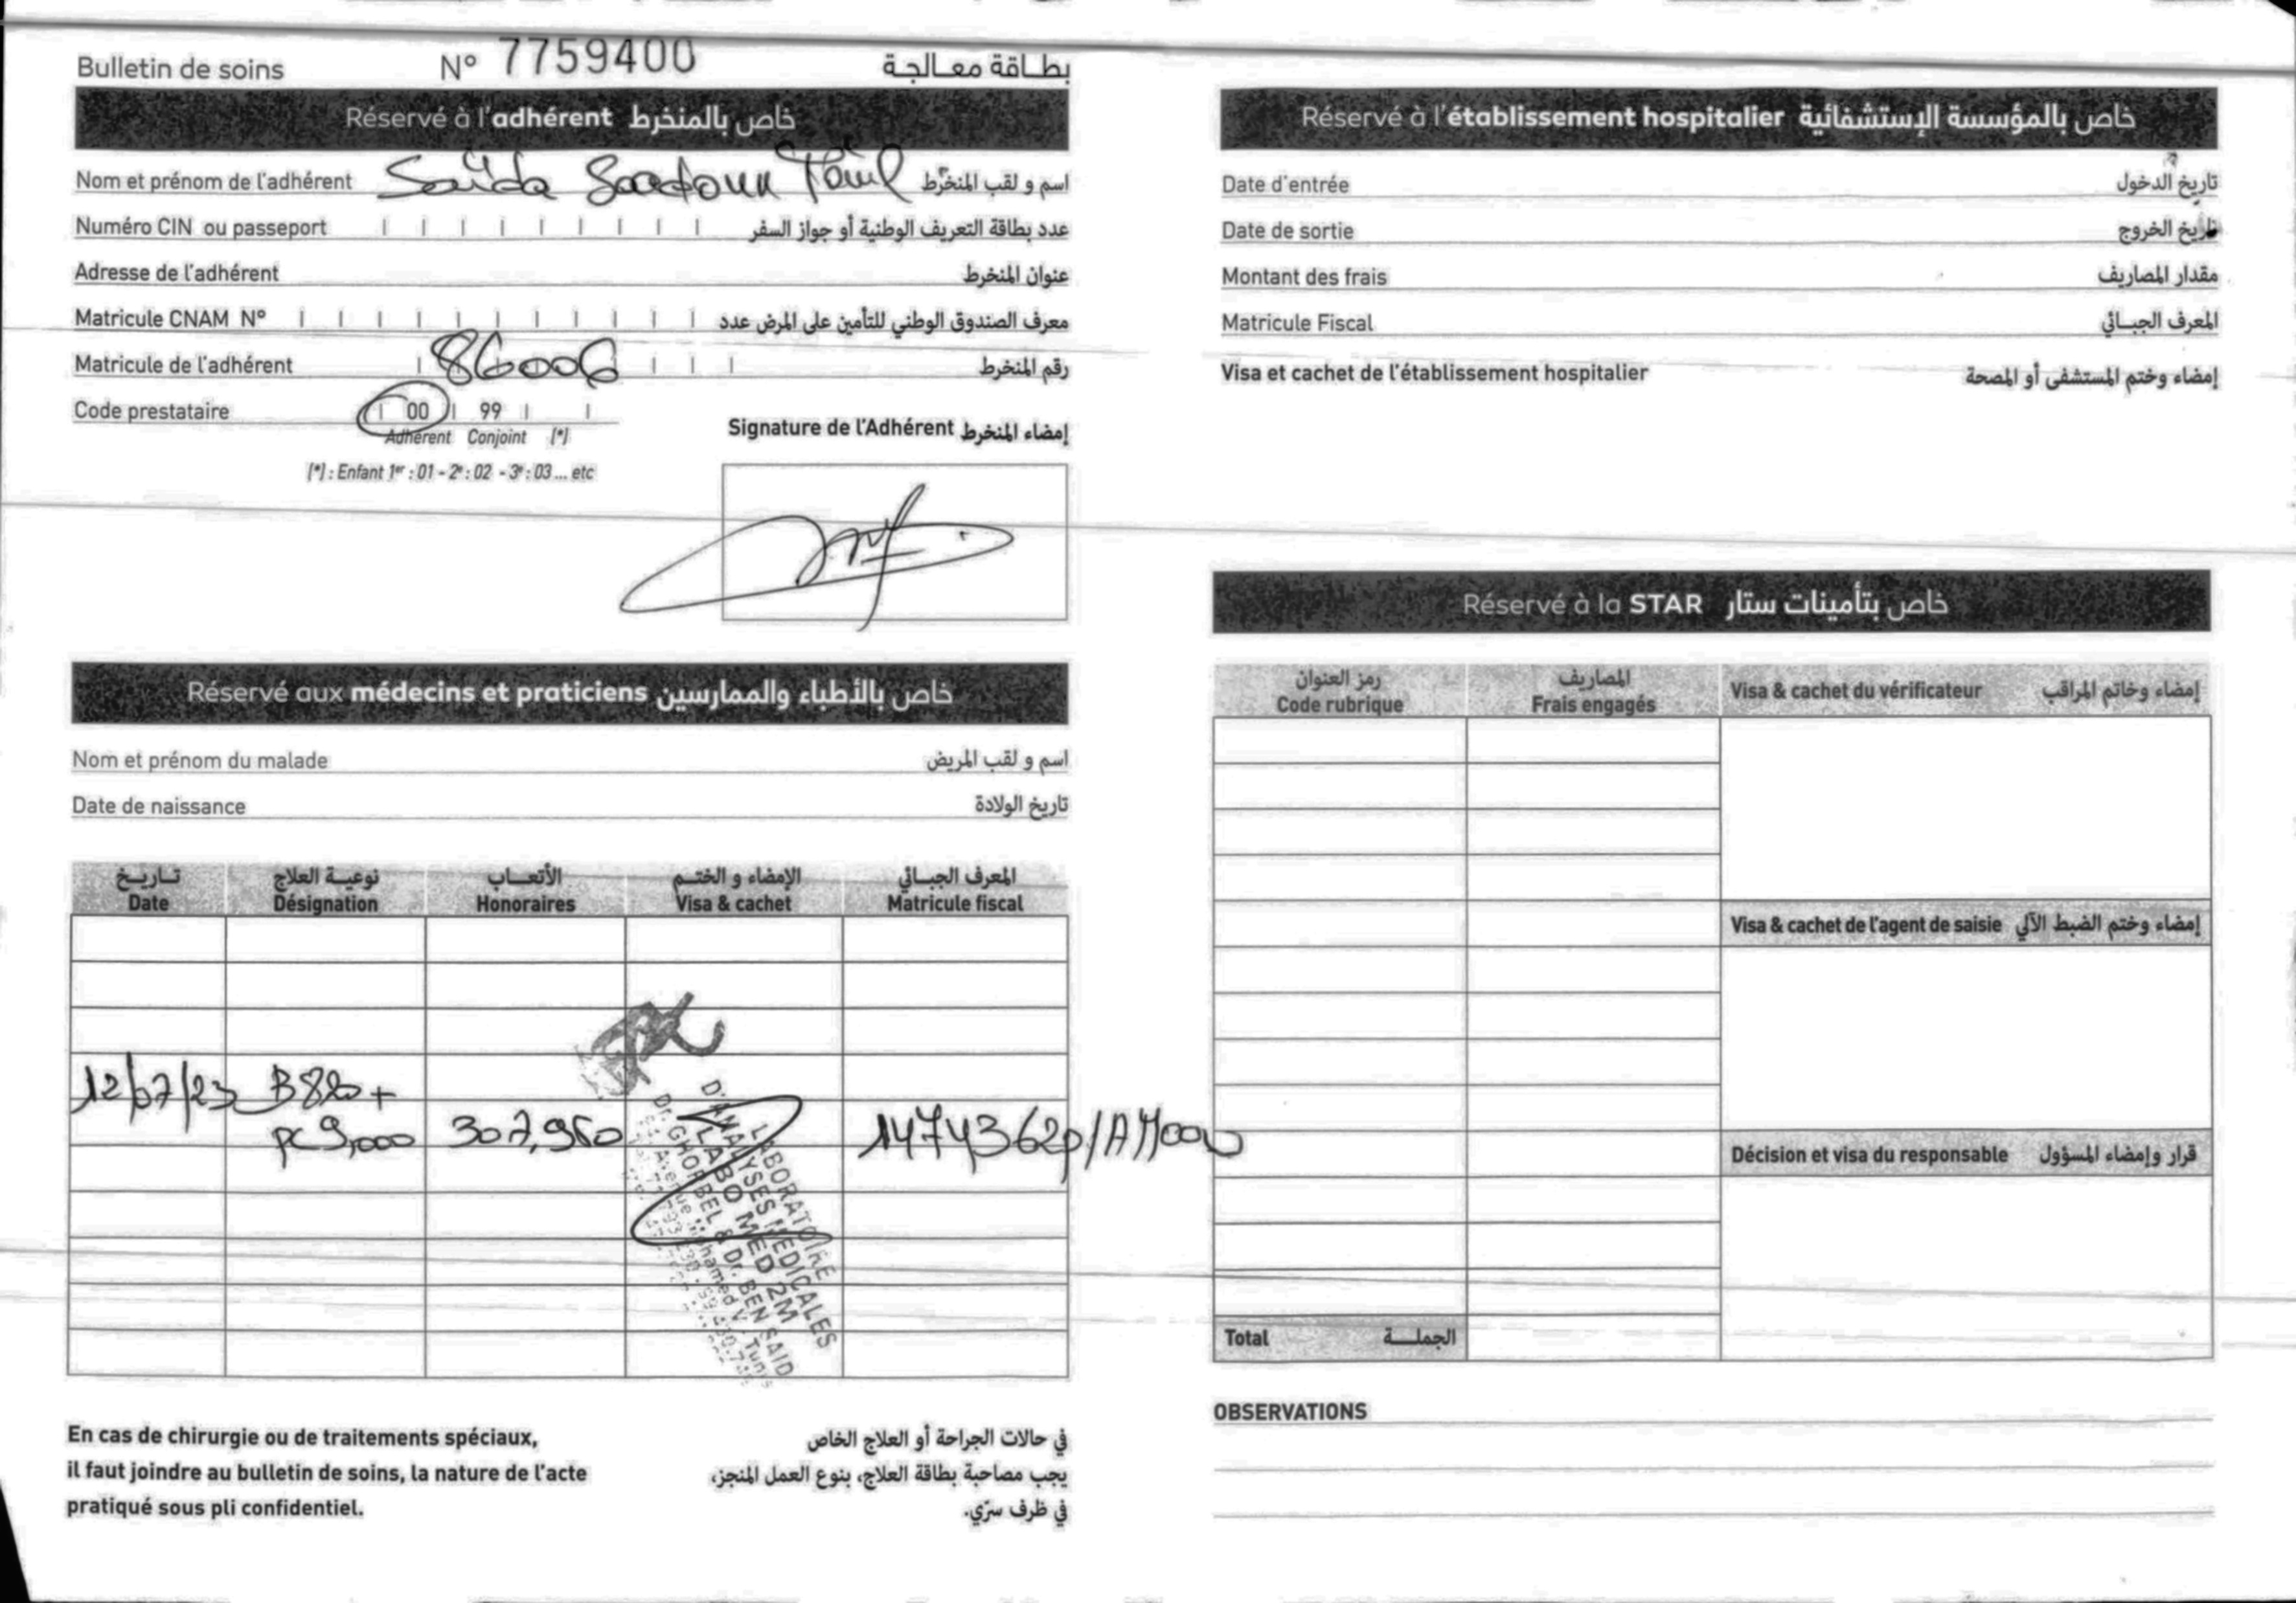 Bulletin de soins N° 7759400 بطاقة معالجة
Réservé à l'adhérent خاص بالمنخرط
Nom et prénom de l'adhérent Saïda Saadoun اسم و لقب المنخرط
Numéro CIN ou passeport عدد بطاقة التعريف الوطنية أو جواز السفر
Adresse de l'adhérent عنوان المنخرط
Matricule CNAM N° معرف الصندوق الوطني للتأمين على المرض عدد
Matricule de l'adhérent 86006 رقم المنخرط
Code prestataire 00 99
Adhérent Conjoint (*)
(*) : Enfant 1er : 01 - 2e : 02 - 3e : 03 ... etc
Signature de l'Adhérent إمضاء المنخرط
Réservé aux médecins et praticiens خاص بالأطباء والممارسين
Nom et prénom du malade اسم و لقب المريض
Date de naissance تاريخ الولادة
تاريخ نوعية العلاج الأتعاب الإمضاء و الختم المعرف الجبائي
Date Désignation Honoraires Visa & cachet Matricule fiscal
12/07/23 B820+
PC 9,000 307,960 1474362p/AM000
LABORATOIRE
D'ANALYSES MEDICALES
LABO MED 2M
Dr. GHORBEL & Dr. BEN SAID
Avenue Mohamed V - Tunis
En cas de chirurgie ou de traitements spéciaux,
il faut joindre au bulletin de soins, la nature de l'acte
pratiqué sous pli confidentiel.
في حالات الجراحة أو العلاج الخاص
يجب مصاحبة بطاقة العلاج، بنوع العمل المنجز،
في ظرف سرّي.
Réservé à l'établissement hospitalier خاص بالمؤسسة الإستشفائية
Date d'entrée تاريخ الدخول
Date de sortie تاريخ الخروج
Montant des frais مقدار المصاريف
Matricule Fiscal المعرف الجبائي
Visa et cachet de l'établissement hospitalier إمضاء وختم المستشفى أو المصحة
Réservé à la STAR خاص بتأمينات ستار
رمز العنوان المصاريف
Code rubrique Frais engagés Visa & cachet du vérificateur إمضاء وخاتم المراقب
Visa & cachet de l'agent de saisie إمضاء وختم الضبط الآلي
Décision et visa du responsable قرار وإمضاء المسؤول
Total الجملة
OBSERVATIONS